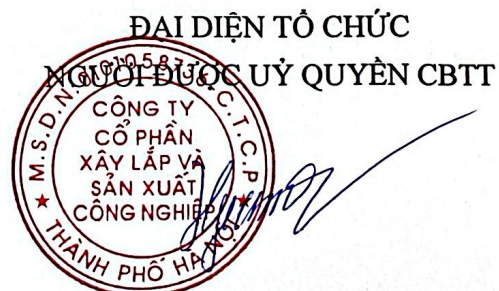 ĐẠI DIỆN TỔ CHỨC
NGƯỜI ĐƯỢC UỶ QUYỀN CBTT
M.S.D.N: C.T.C.P
CÔNG TY
CỔ PHẦN
XÂY LẮP VÀ
SẢN XUẤT
CÔNG NGHIỆP
THÀNH PHỐ HÀ NỘI